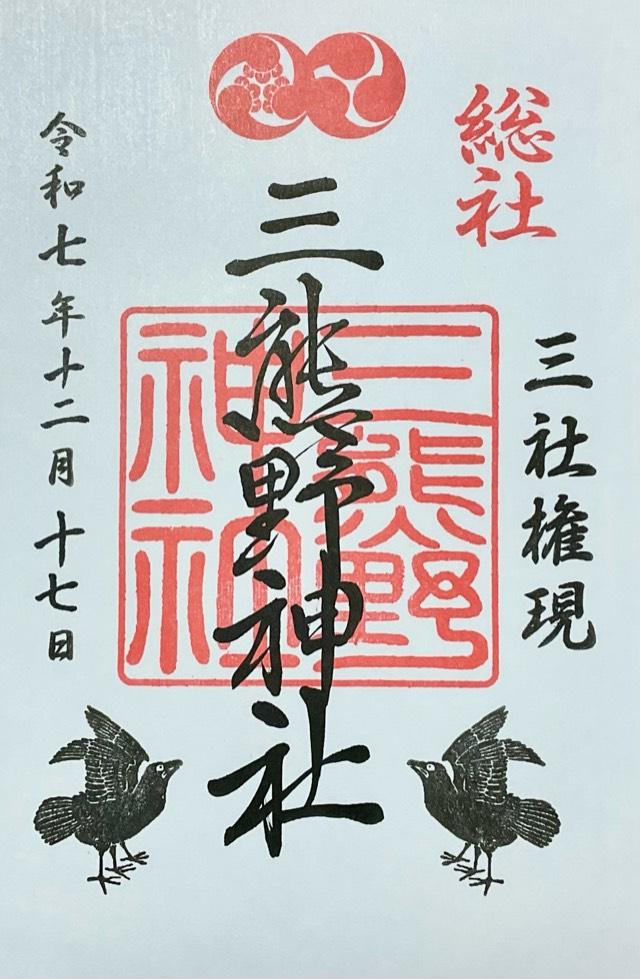 総社
三社権現
三熊野神社
三熊野
神社
令和七年十二月十七日